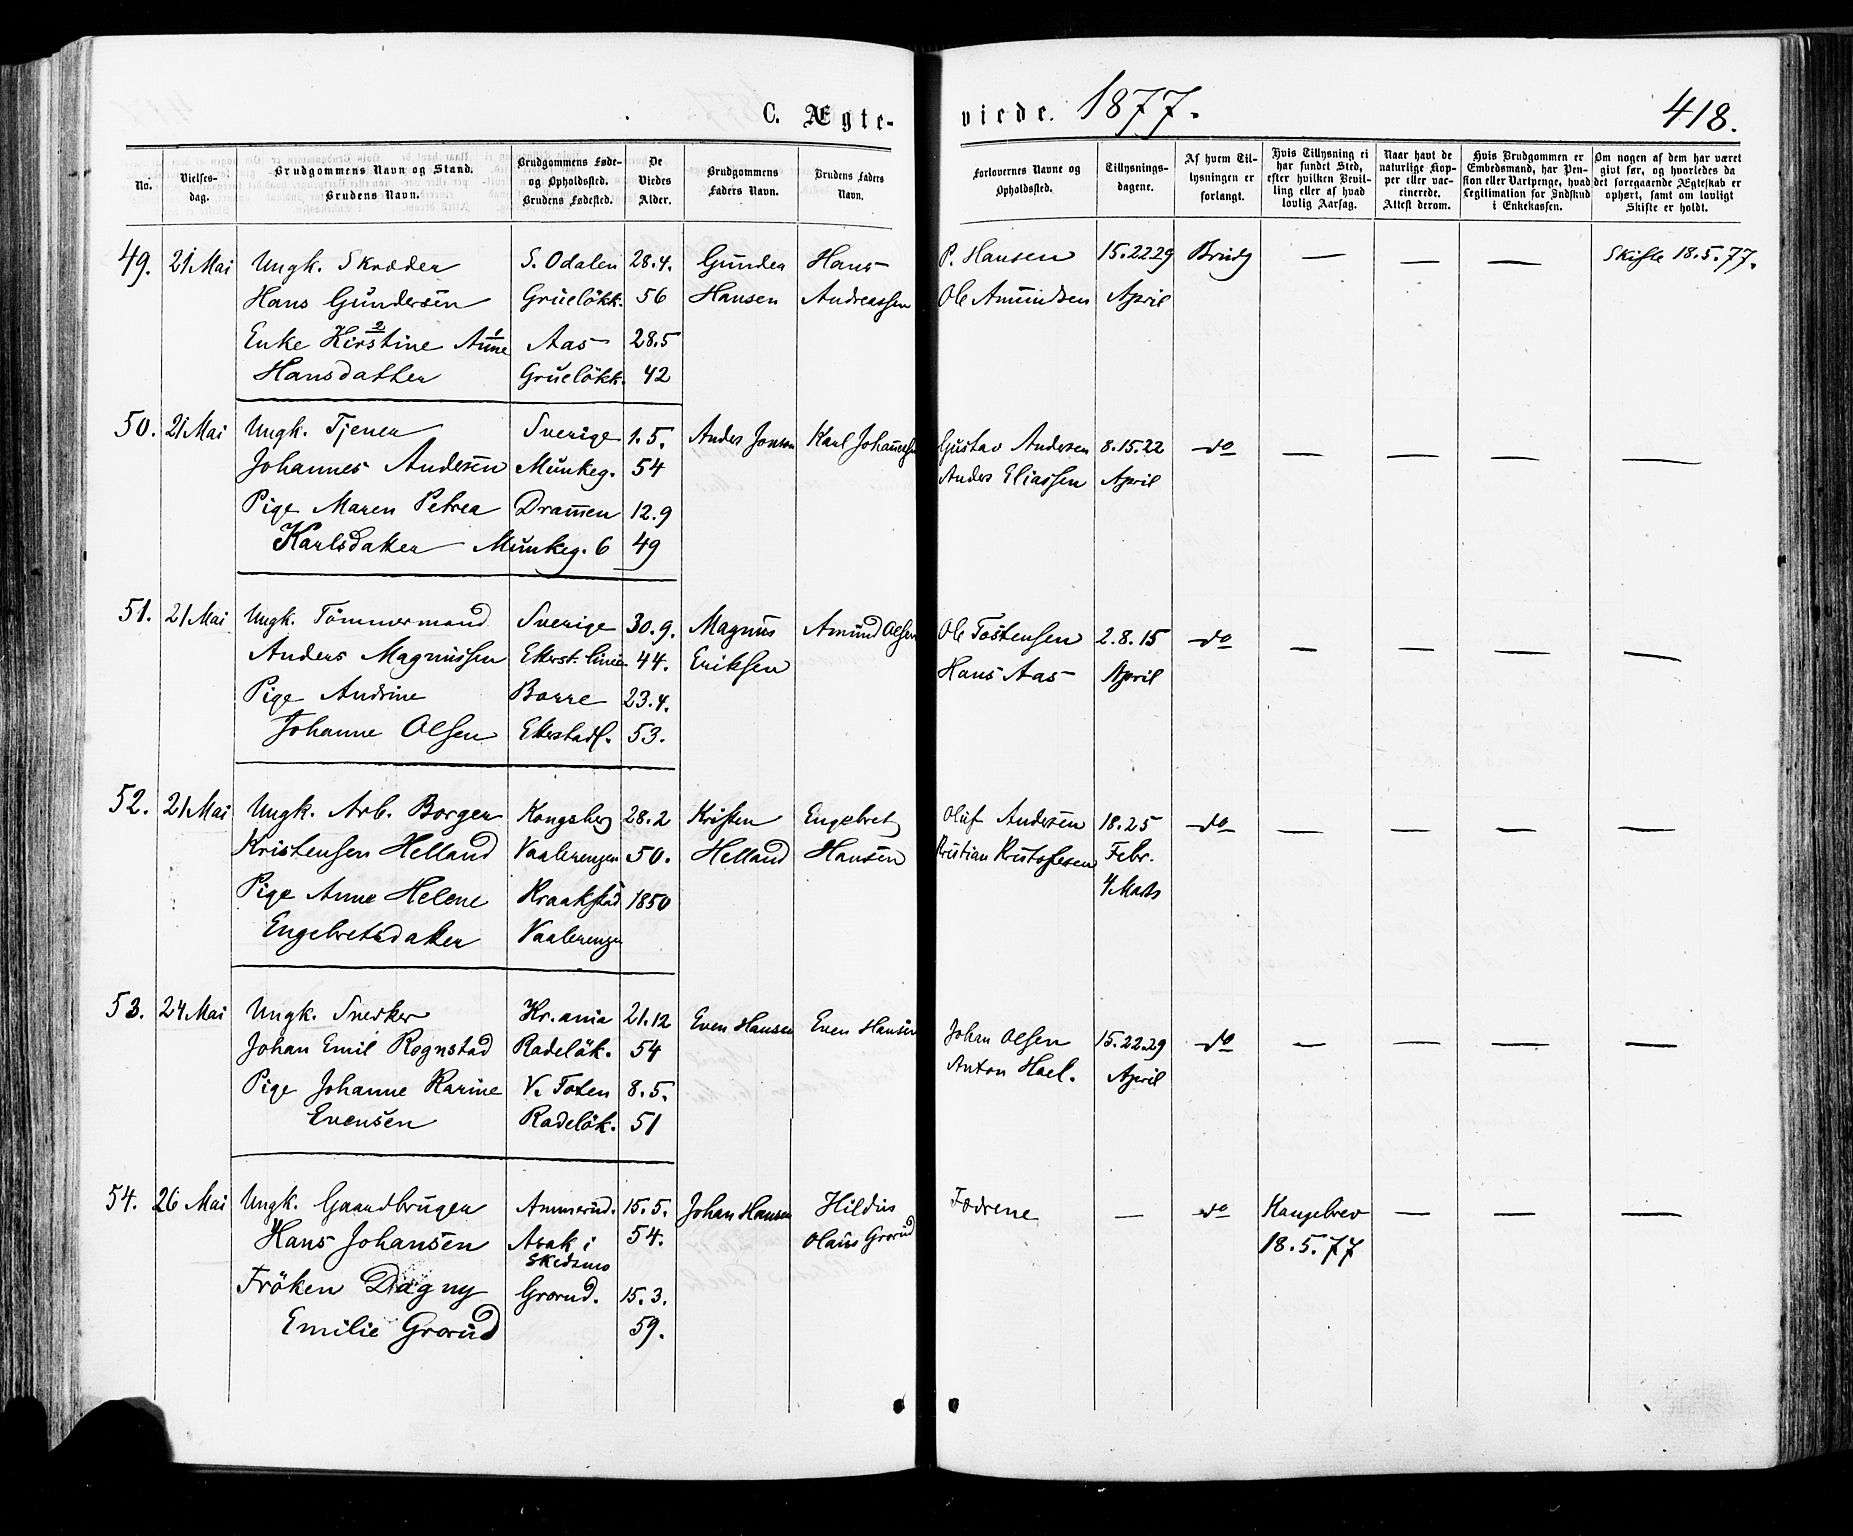 C. Ægte-
viede. 1877.
418.
No.
Vielses-
dag.
Brudgommens Navn og Stand.
Brudens Navn.
Brudgommens Føde-
og Opholdsted.
Brudens Fødested.
De
Viedes
Alder.
Brudgommens
Faders Navn.
Brudens Faders
Navn.
Forlovernes Navne og
Opholdsted.
Tillysnings-
dagene.
Af hvem Til-
lysningen er
forlangt.
Hvis Tillysning ei
har fundet Sted,
efter hvilken Bevil-
ling eller af hvad
lovlig Aarsag.
Naar havt de
naturlige Kop-
per eller vac-
cinerede.
Attest derom.
Hvis Brudgommen er
Embedsmand, har Pen-
sion eller Vartpenge, hvad
Legitimation for Indskud
i Enkekassen.
Om nogen af dem har været
givt før, og hvorledes da
det foregaaende Ægteskab er
ophørt, samt om lovligt
Skifte er holdt.
49. 21 Mai Ungk. Skræder S. Odalen 28.4. Gunder Hans P. Hansen 15.22.29 Brudg — — — Skifte 18.5.77.
Hans Gundersen Grueløkk. 56 Hansen Andreassen Ole Amundsen April
Enke Kirstine 2 Anne 1 Aas 28.5
Hansdatter Grueløkk. 42
50. 21 Mai Ungk. Tjener Sverige 1.5. Anders Jonson Karl Johannesen Gustav Andersen 8.15.22 do — — — —
Johannes Andersen Munkeg. 54 Anders Eliassen April
Pige Maren Petrea Dramen 12.9
Karlsdatter Munkeg. 6 49
51. 21 Mai Ungk. Tömmermand Sverige 30.9. Magnus Amund Olsen Ole Tostensen 2.8.15 do — — — —
Anders Magnussen Ekerst. linie 44. Eriksen Hans Aas April
Pige Andrine Borre 23.4.
Johanne Olsen Ekerstadl. 53.
52. 21 Mai Ungk. Arb. Borger Kongsberg 28.2 Kristen Engebret Oluf Andersen 18.25 do — — — —
Kristensen Helland Vaalerengen 50. Helland Hansen Kristian Kristoffesen Febr.
Pige Anne Helene Kraakstad 1850 4 Marts
Engebretsdatter Vaalerengen
53. 24 Mai Ungk. Snedker Kr.ania 21.12 Even Hansen Even Hansen Johan Olsen 15.22.29 do — — — —
Johan Emil Rognstad Radeløk. 54 Anton Hoel. April
Pige Johanne Karine V. Toten 8.5.
Evensen Radeløk. 51
54. 26 Mai Ungk. Gaardbruger Ammerud. 15.5. Johan Hansen Hildus Fædrene — do Kongebrev — — —
Hans Johansen Asak i 54. Olaus Grorud 18.5.77
Skedsmo
Fröken Dagny Grorud. 15.3.
Emilie Grorud 59.